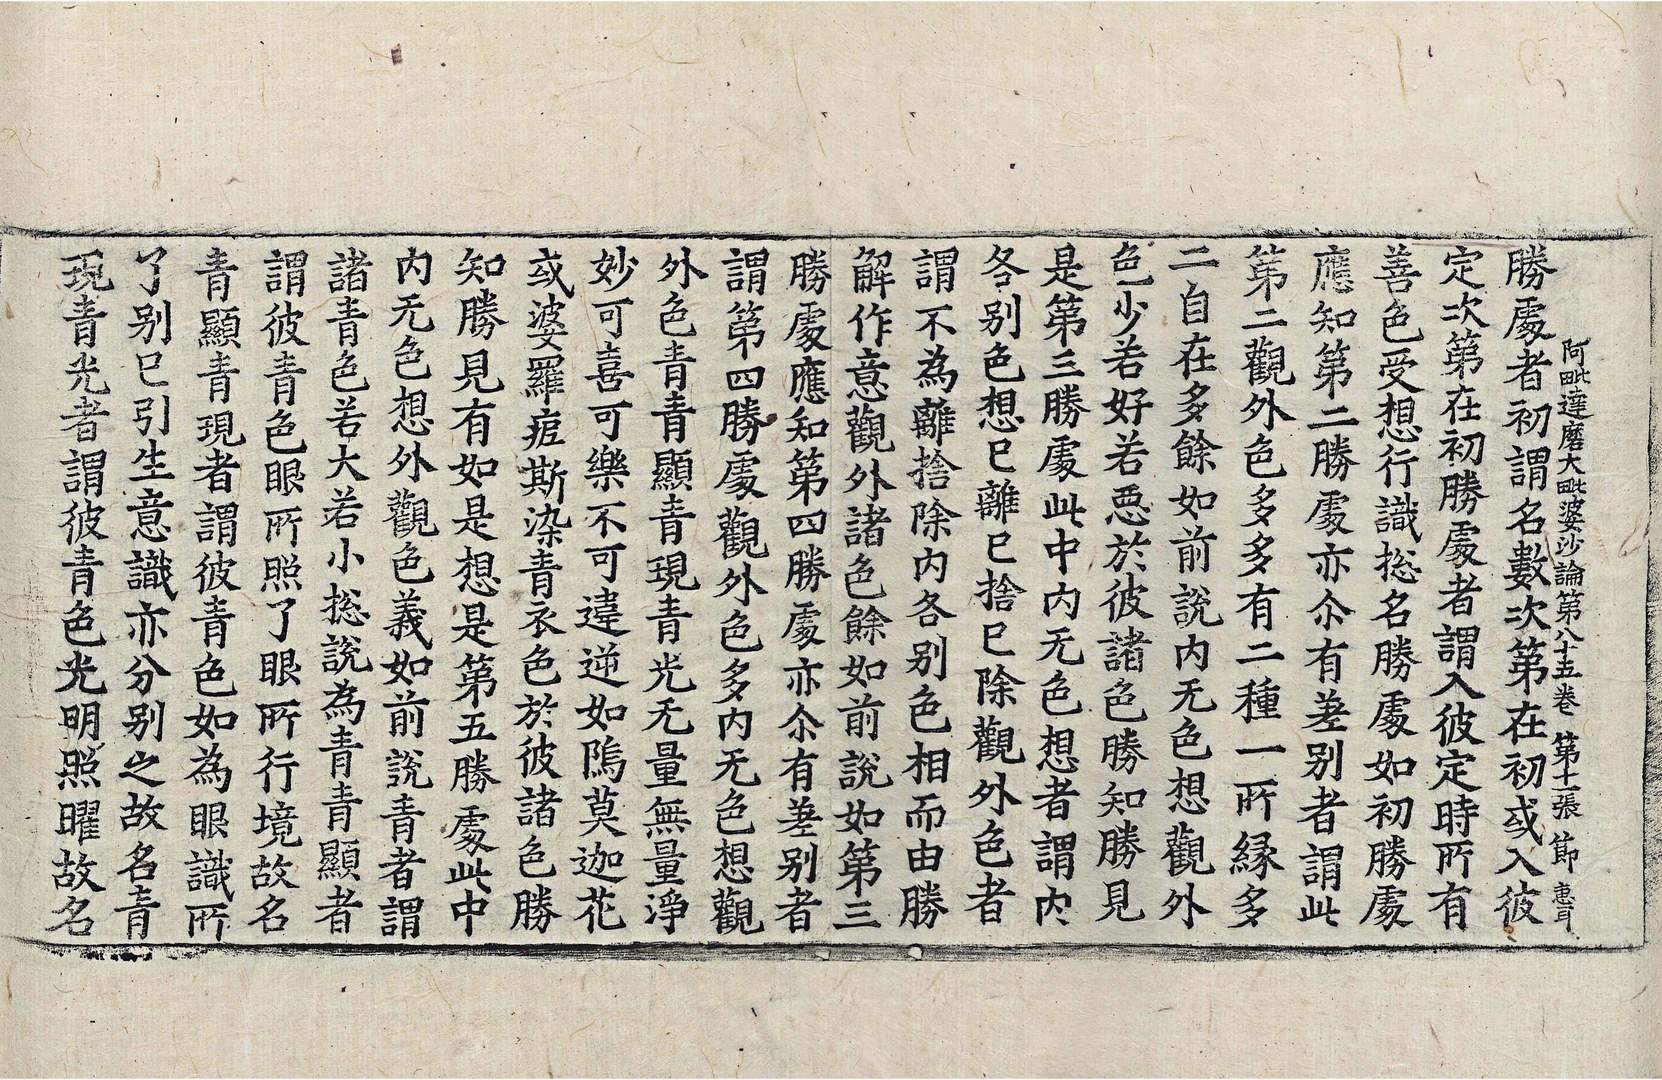 阿毗達磨大毗婆沙論第八十五卷 第十一張 節
勝處者初謂名數次第在初或入彼
定次第在初勝處者謂入彼定時所有
善色受想行識揔名勝處如初勝處
應知第二勝處亦尒有差别者謂此
第二觀外色多多有二種一所緣多
二自在多餘如前說内无色想觀外
色少若好若惡於彼諸色勝知勝見
是第三勝處此中内无色想者謂内
各别色想已離已捨已除觀外色者
謂不為離捨除内各别色相而由勝
解作意觀外諸色餘如前說如第三
勝處應知第四勝處亦尒有差别者
謂第四勝處觀外色多内无色想觀
外色青青顯青現青光无量無量淨
妙可喜可樂不可違逆如鄔莫迦花
或婆羅痆斯染青衣色於彼諸色勝
知勝見有如是想是第五勝處此中
内无色想外觀色義如前說青者謂
諸青色若大若小揔說為青青顯者
謂彼青色眼所照了眼所行境故名
青顯青現者謂彼青色如為眼識所
了别已引生意識亦分别之故名青
現青光者謂彼青色光明照曜故名